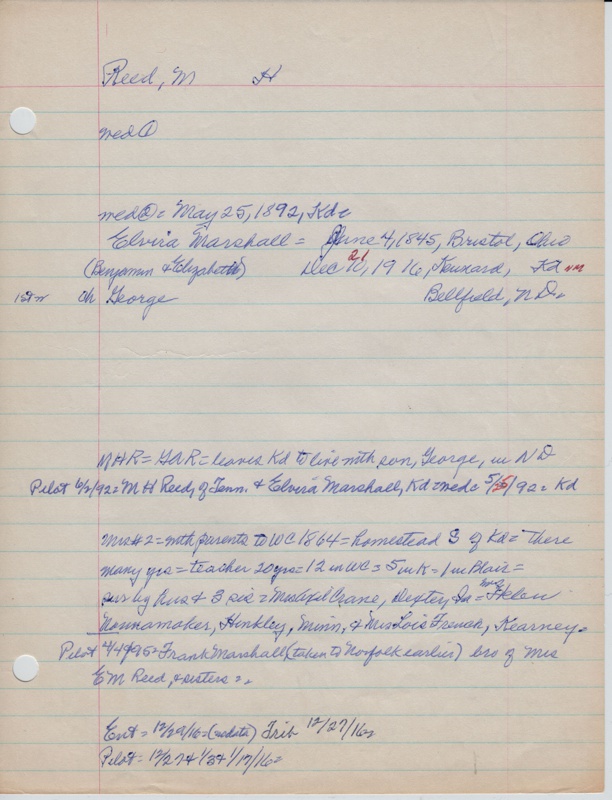 Reed, M H
med ①
med ② = May 25, 1892, Kd =
Elvira Marshall = June 4, 1845, Bristol, Ohio
(Benjamin & Elizabeth) Dec 21, 1916, Kennard, Kd
1st m Ch George Bellfield, N D =
M H R = GAR = leaves Kd to live with son, George, in N D
Pilot 6/2/92 = M H Reed, of Tenn. & Elvira Marshall, Kd = med = 5/25/92 = Kd
Mrs #2 = with parents to WC 1864 = homestead S of Kd = there
many yrs = teacher 20 yrs = 12 in WC = 5 in K = 1 in Blair =
sur by hus & 3 sis = Mrs Crane, Dexter, Ia = Mrs Helen
Nonnamaker, Hinkley, Minn, & Mrs Lois French, Kearney =
Pilot 4/4/95 = Frank Marshall (taken to Norfolk earlier) bro of Mrs
E M Reed, & sisters =
Ent = 12/29/16 = Trib 12/27/16 =
Pilot = 12/27 & 1/3 & 1/17/16 =